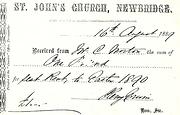 ST. JOHN'S CHURCH, NEWBRIDGE.
16th August 1889
Received from Mr. C. Morton the sum of
One Pound
for Seat Rent, to Easter 1890
Hon. Sec.